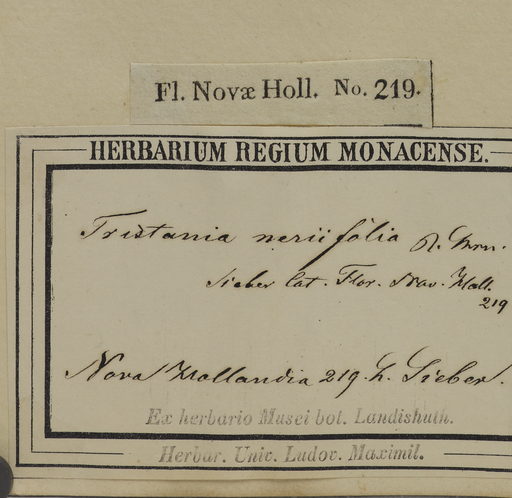 Fl. Novæ Holl. No. 219.
HERBARIUM REGIUM MONACENSE.
Tristania neriifolia R. Brn.
Sieber Cat. Flor. Nov. Holl.
219
Nova Hollandia 219 h. Sieber.
Ex herbario Musei bot. Landishuth.
Herbar. Univ. Ludov. Maximil.